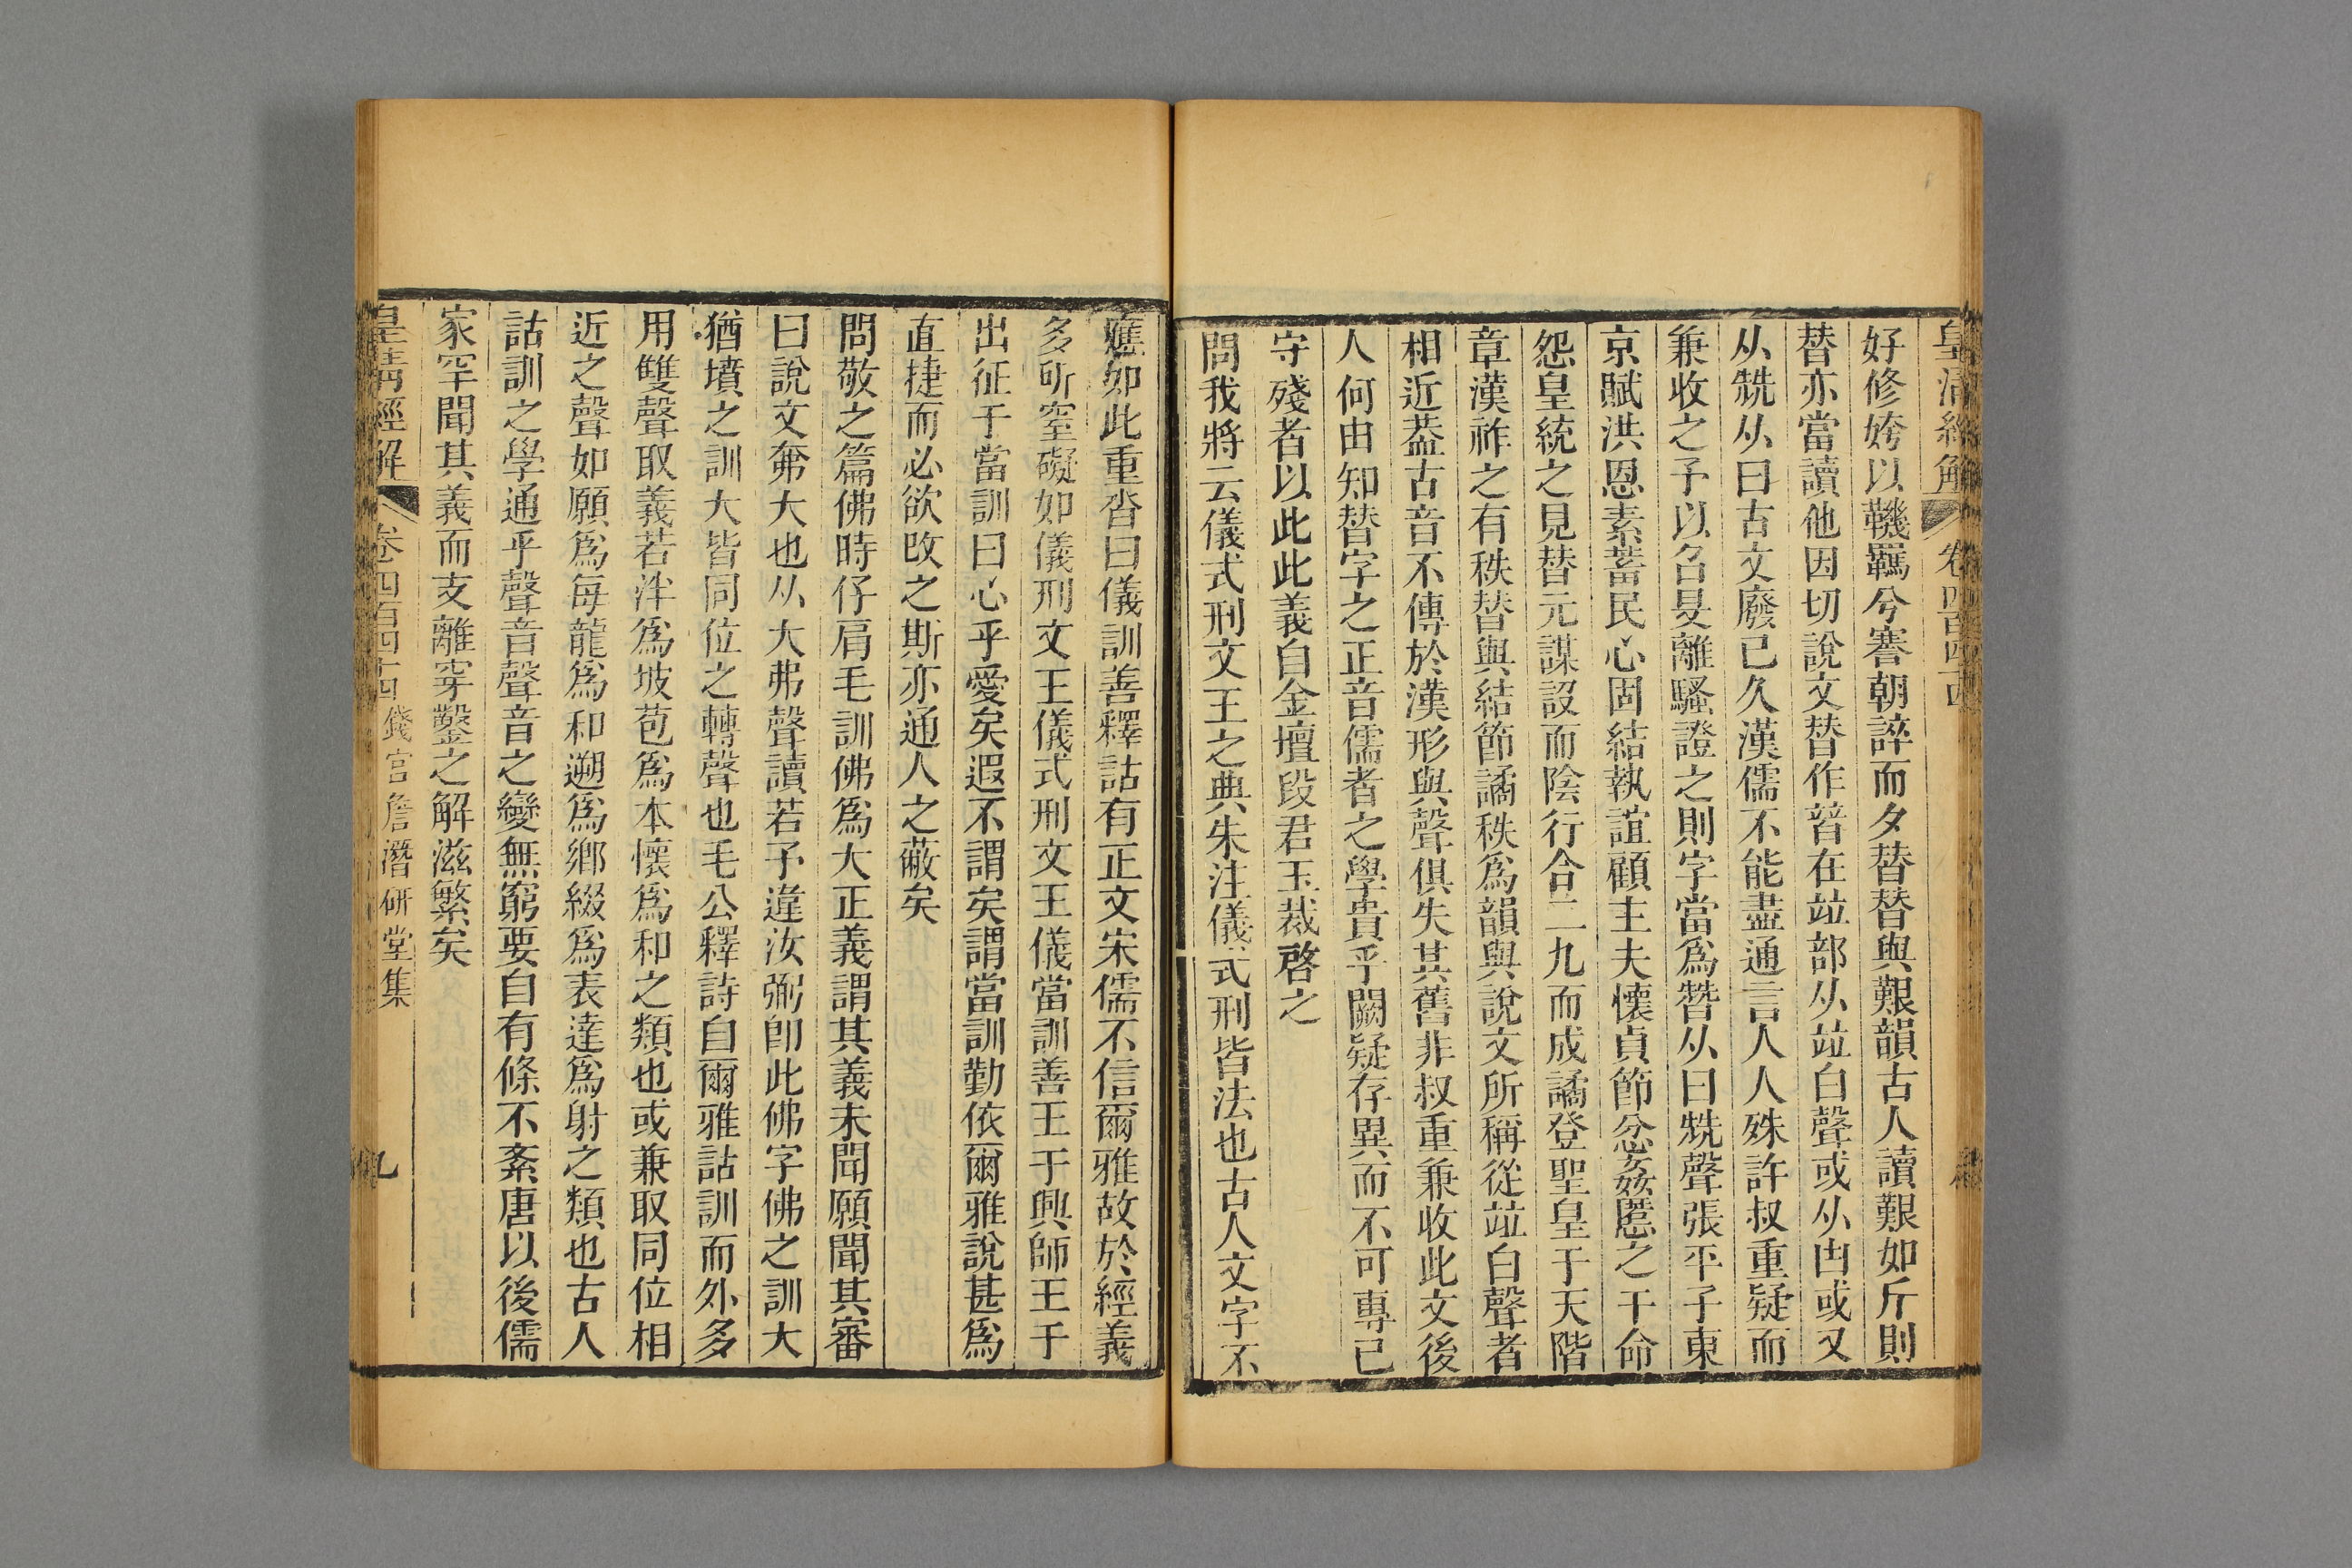 皇清經解 卷四百四十四
好修姱以鞿羈兮謇朝誶而夕替替與艱韻古人讀艱如斤則
替亦當讀他因切說文替作暜在竝部从竝白聲或从曰或又
从兟从曰古文廢已久漢儒不能盡通言人人殊許叔重疑而
兼收之予以名旻離騷證之則字當爲朁从曰兟聲張平子東
京賦洪恩素蓄民心固結執誼顧主夫懷貞節忿姦慝之干命
怨皇統之見替元謀設而陰行合二九而成譎登聖皇于天階
章漢祚之有秩替與結節譎秩爲韻與說文所稱從竝白聲者
相近葢古音不傳於漢形與聲俱失其舊非叔重兼收此文後
人何由知替字之正音儒者之學貴乎闕疑存異而不可專己
守殘者以此此義自金壇段君玉裁啓之
問我將云儀式刑文王之典朱注儀式刑皆法也古人文字不
應如此重沓曰儀訓善釋詁有正文宋儒不信爾雅故於經義
多所窒礙如儀刑文王儀式刑文王儀當訓善王于興師王于
出征于當訓曰心乎愛矣遐不謂矣謂當訓勤依爾雅說甚爲
直捷而必欲改之斯亦通人之蔽矣
問敬之篇佛時仔肩毛訓佛爲大正義謂其義未聞願聞其審
曰說文奫大也从大弗聲讀若予違汝弼卽此佛字佛之訓大
猶墳之訓大皆同位之轉聲也毛公釋詩自爾雅詁訓而外多
用雙聲取義若泮爲坡苞爲本懷爲和之類也或兼取同位相
近之聲如願爲每龍爲和遡爲鄉綴爲表達爲射之類也古人
詁訓之學通乎聲音聲音之變無窮要自有條不紊唐以後儒
家罕聞其義而支離穿鑿之解滋繁矣
皇清經解 卷四百四十四 錢宮詹潛研堂集 九